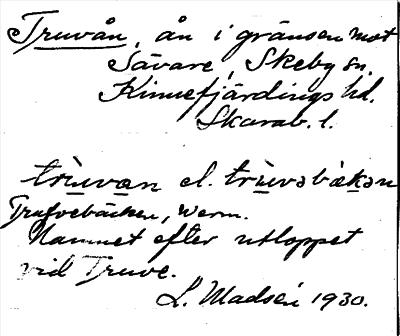 Truvån, ån i gränsen mot
Sävare, Skeby sn.
Kinnefjärdings hd.
Skarab. l.
trùvan el. trùvəbäkən
Trufvebäcken, Werm.
Namnet efter utloppet
vid Truve.
L. Madsén 1930.